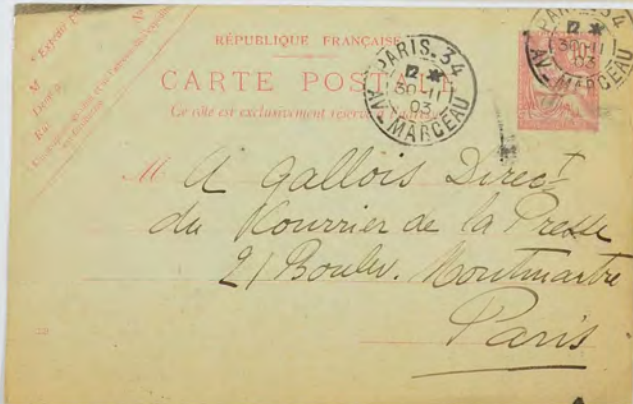 "Expéd
N°
M
Demeu
Rue
RÉPUBLIQUE FRANÇAISE
CARTE POSTALE
Ce côté est exclusivement réservé à l'adresse
PARIS.34
12 *
30-11
03
AV-MARCEAU
PARIS.34
12 *
30-11
03
AV-MARCEAU
10
M A Gallois Direct
du Kourrier de la Presse
21 Boulev. Montmartre
Paris